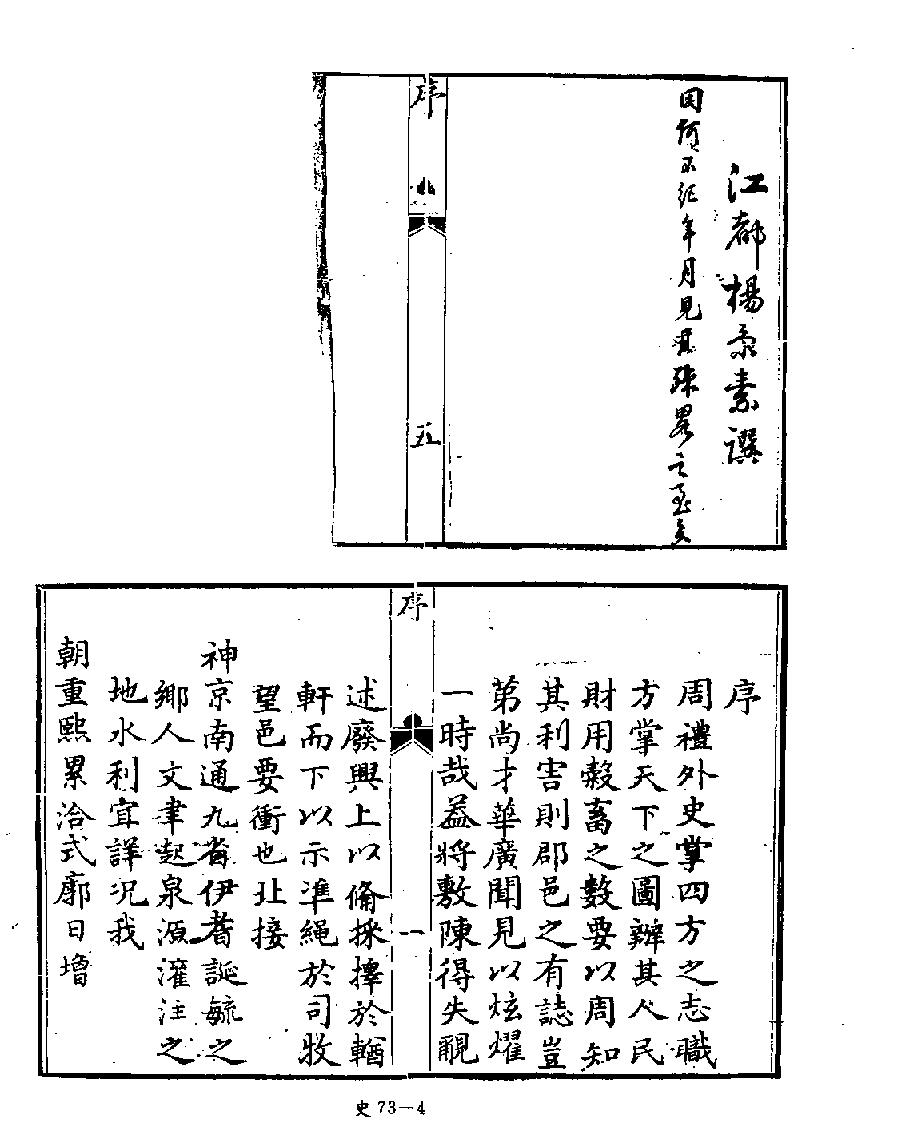 江都楊
素譔
年月見其疎畧之
序
五
序
周禮外史掌四方之志職
方掌天下之圖辦其人民
財用穀畜之數要以周知
其利害則郡邑之有誌豈
第尚才華廣聞見以炫燿
一時哉葢將敷陳得失覼
序
一
述廢興上以備採擇於輶
軒而下以示準繩於司牧
望邑要衝也北接
神京南通九省伊耆誕毓之
鄉人文聿起泉源灌注之
地水利宜詳况我
朝重熙累洽式廓日增
史73—4